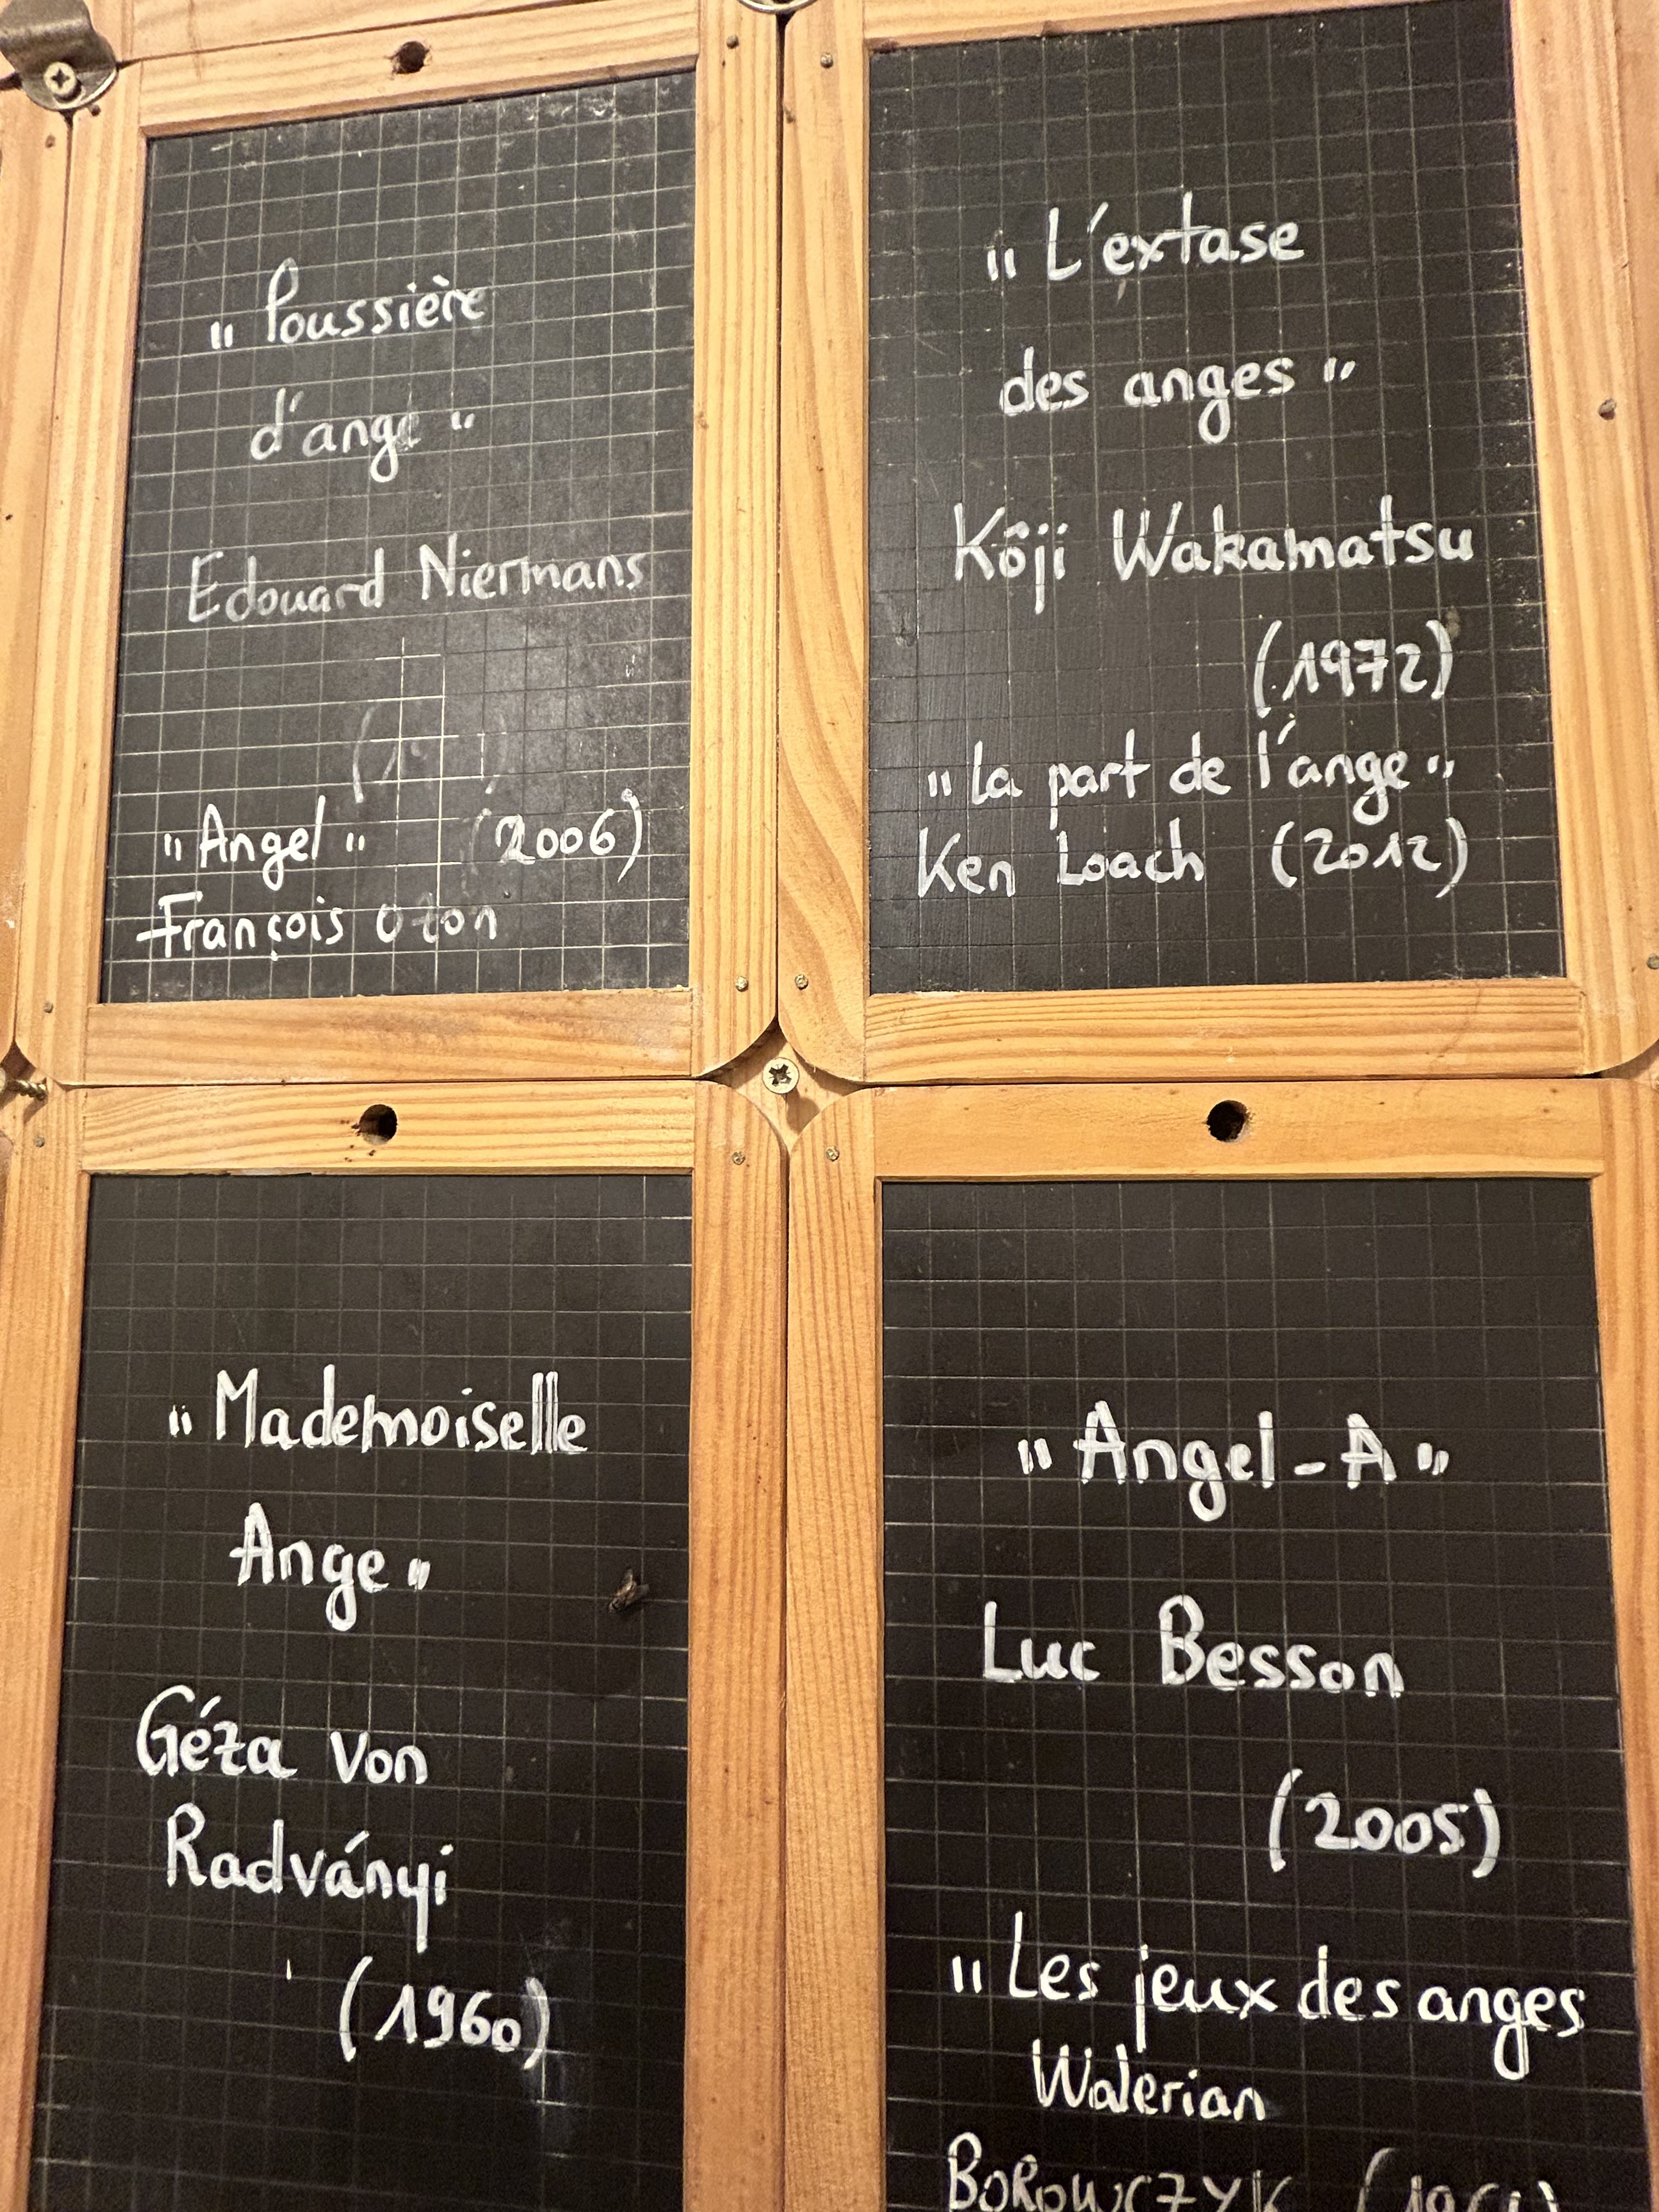 "Poussière
d'ange"
Edouard Niermans
"Angel" (2006)
François Ozon
"L'extase
des anges"
Kôji Wakamatsu
(1972)
"La part de l'ange"
Ken Loach (2012)
"Mademoiselle
Ange"
Géza Von
Radványi
(1960)
"Angel-A"
Luc Besson
(2005)
"Les jeux des anges
Walerian
BOROWCZYK